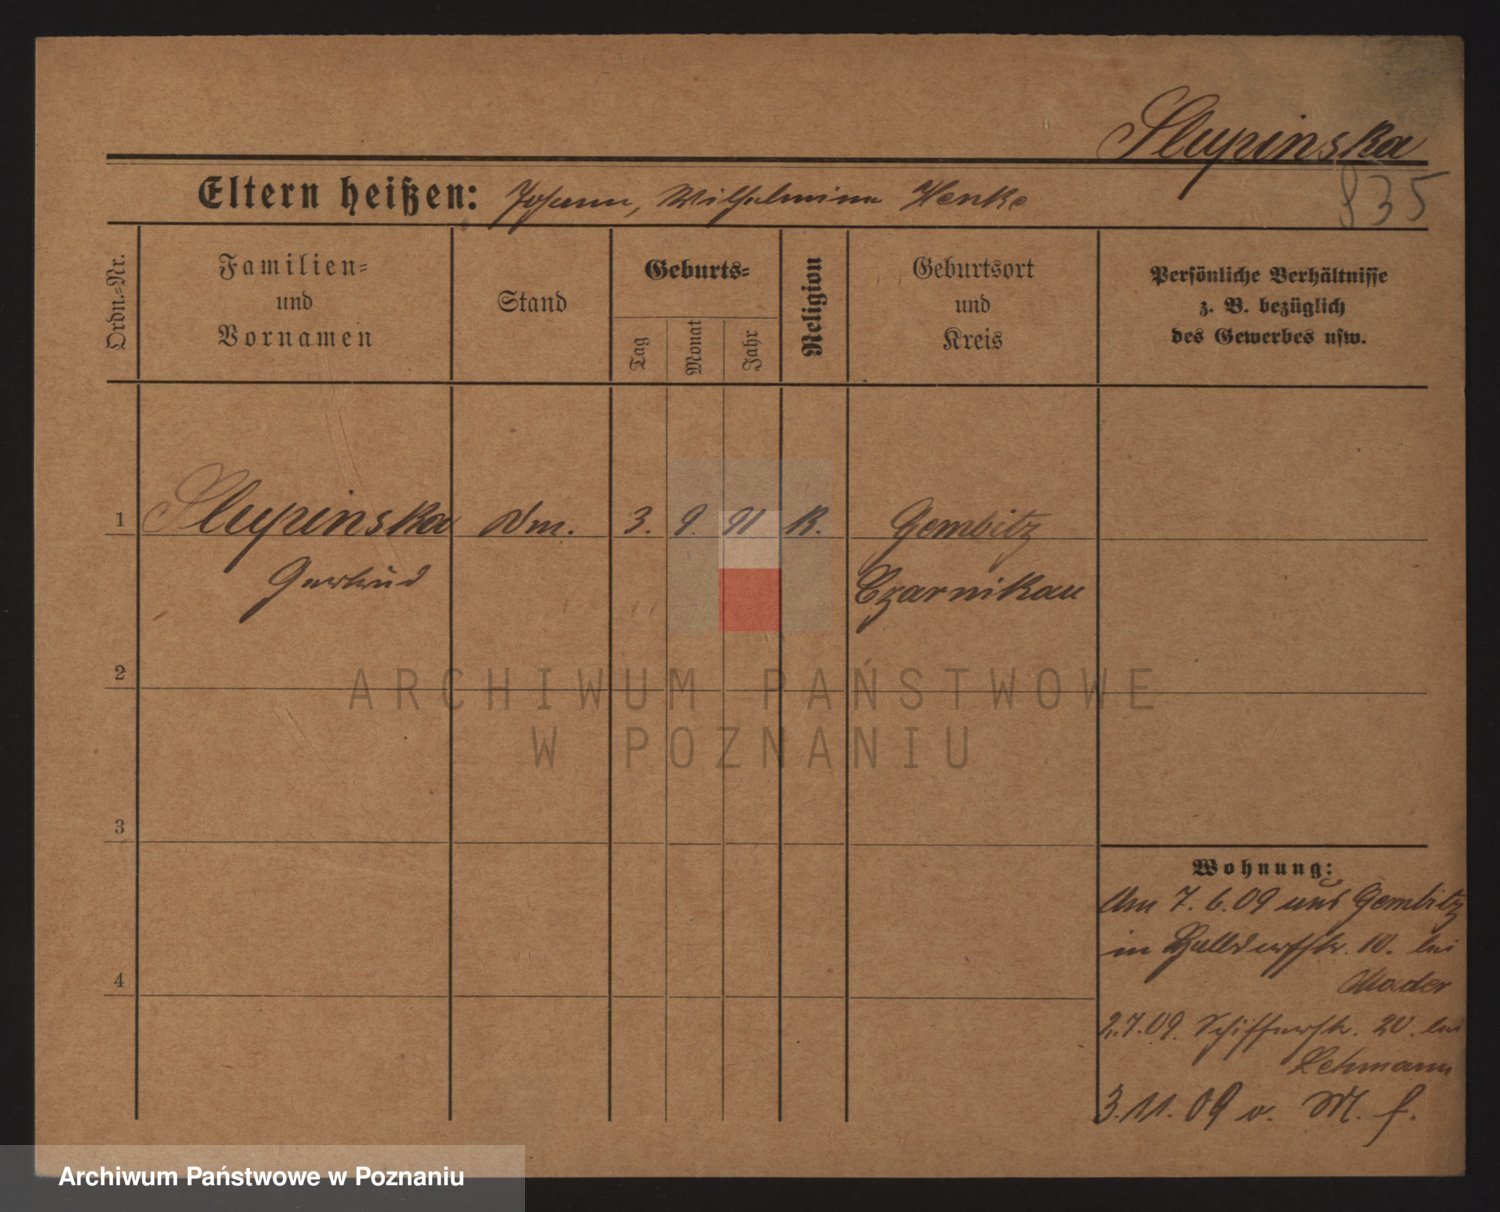 Slupinska
835
Eltern heißen: Johann, Wilhelmine Henke
Ordn.-Nr.
Familien-
und
Vornamen
Stand
Geburts-
Tag
Monat
Jahr
Religion
Geburtsort
und
Kreis
Persönliche Verhältnisse
z. B. bezüglich
des Gewerbes usw.
1
Slupinska
Gertrud
3. 9. 91 K.
Gembitz
Czarnikau
2
ARCHIWUM PAŃSTWOWE
W POZNANIU
3
4
Wohnung:
Am 7. 6. 09 aus Gembitz
in 10. bei
Mader
2.7.09. Schifferstr. 20. bei
Lehmann
3.11.09 v. M. f.
Archiwum Państwowe w Poznaniu